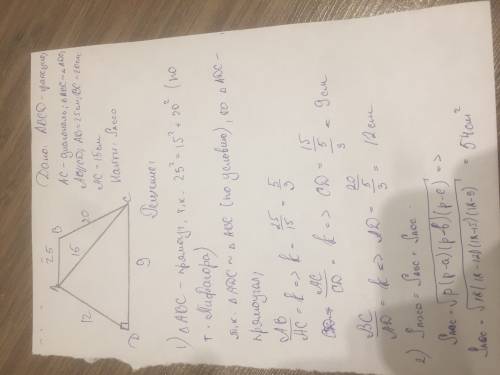 Дано: ABCD - трапеция,
AC - диагональ; △ABC ~ △ADC,
AB||CD, AB = 25 см, BC = 20 см,
AC = 15 см
Найти: S_ABCD
B
25
20
A
15
C
12
D
9
Решение:
1) △ABC - прямоуг, т.к. 25² = 15² + 20² (по
т. Пифагора)
т.к. △ABC ~ △ADC (по условию), то △ADC -
прямоугол,
AB/AC = k => k = 25/15 = 5/3
AC/CD = k => CD = 15/(5/3) = 9 см
BC/AD = k => AD = 20/(5/3) = 12 см
2) S_ABCD = S_ABC + S_ADC.
S_ADC = √p(p-a)(p-b)(p-c) =>
S_ADC = √18(18-12)(18-15)(18-9) = 54 см²